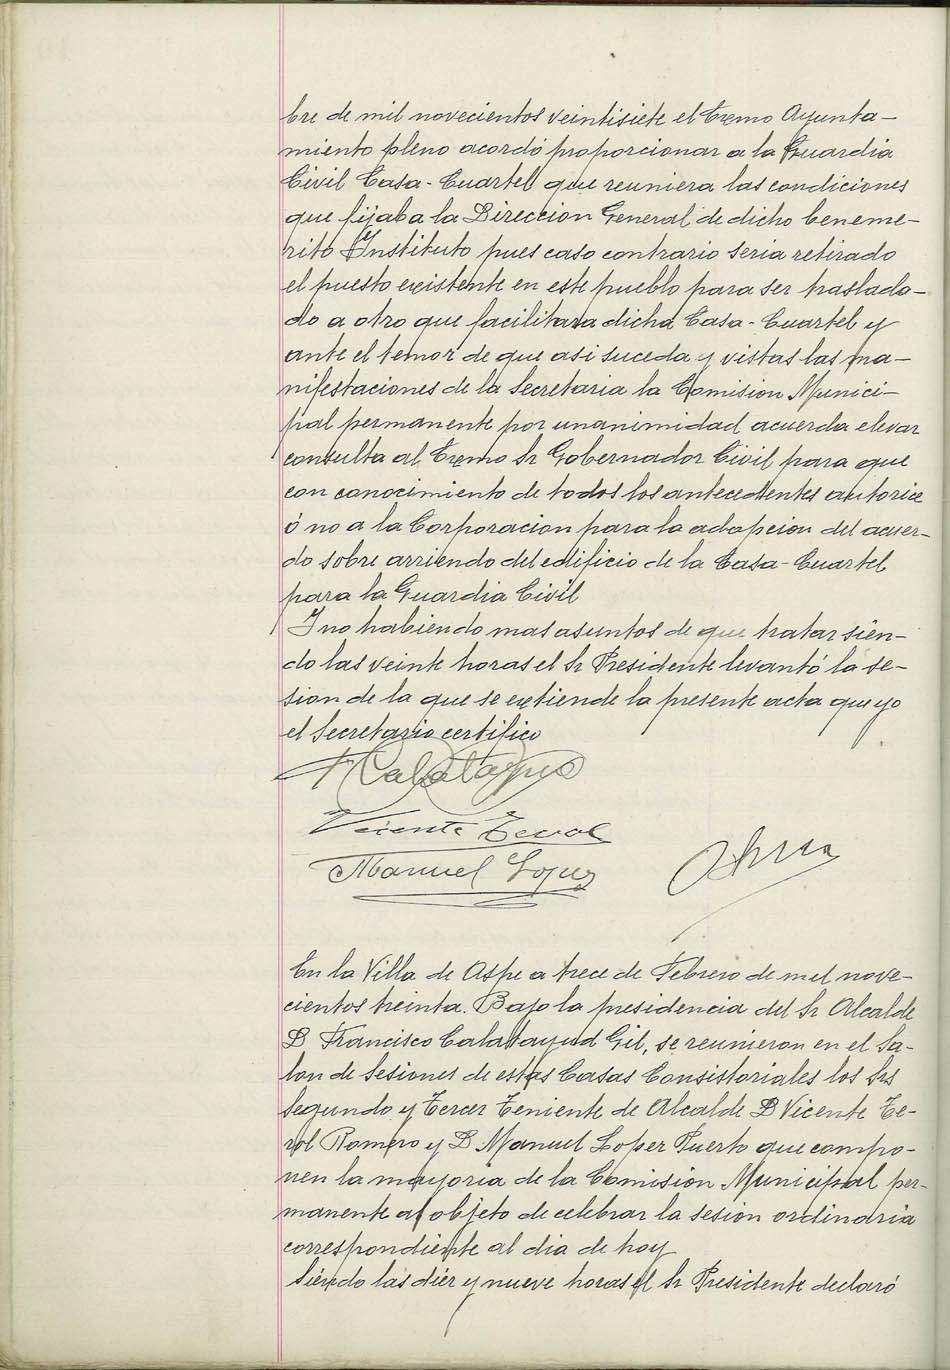 bre de mil novecientos veintisiete el Excmo Ayunta-
miento pleno acordó proporcionar a la Guardia
Civil Casa-Cuartel que reuniera las condiciones
que fijaba la Direccion General de dicho beneme-
rito Instituto pues caso contrario seria retirado
el puesto existente en este pueblo para ser traslada-
do a otro que facilitara dicha Casa-Cuartel y
ante el temor de que asi suceda y vistas las ma-
nifestaciones de la Secretaria la Comision Munici-
pal permanente por unanimidad acuerda elevar
consulta al Excmo Sr Gobernador Civil para que
con conocimiento de todos los antecedentes autorice
ó no a la Corporacion para la adopcion del acuer-
do sobre arriendo del edificio de la Casa-Cuartel
para la Guardia Civil
Y no habiendo mas asuntos de que tratar sien-
do las veinte horas el Sr Presidente levantó la se-
sion de la que se extiende la presente acta que yo
el Secretario certifico
F Calatayud
Vicente Terol
Manuel Lopez
En la Villa de Aspe a trece de Febrero de mil nove-
cientos treinta. Bajo la presidencia del Sr Alcalde
D Francisco Calatayud Gil, se reunieron en el Sa-
lon de Sesiones de estas Casas Consistoriales los Srs
Segundo y Tercer Teniente de Alcalde D Vicente Te-
rol Romero y D Manuel Loper Puerto que compo-
nen la mayoria de la Comision Municipal per-
manente al objeto de celebrar la sesion ordinaria
correspondiente al dia de hoy
Siendo las diéz y nueve horas el Sr Presidente declaró